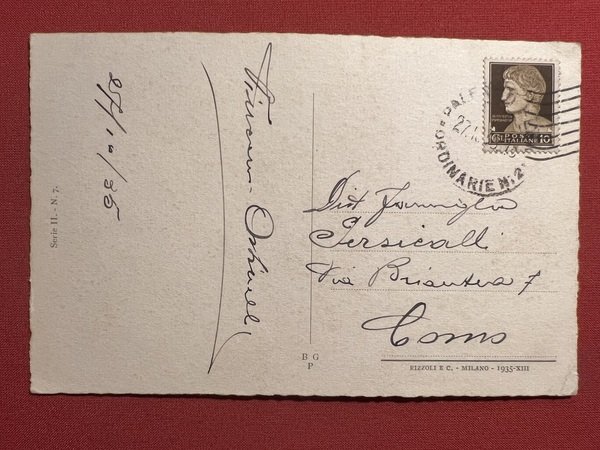 27/10/35
Serie II. - N. 7.
B G
P
PALE
27.10
ORDINARIE N. 2
POSTE
ITALIANE
CENT 10
Dist Famiglia
Persicalli
Via Briantea 7
Como
RIZZOLI E C. - MILANO - 1935-XIII